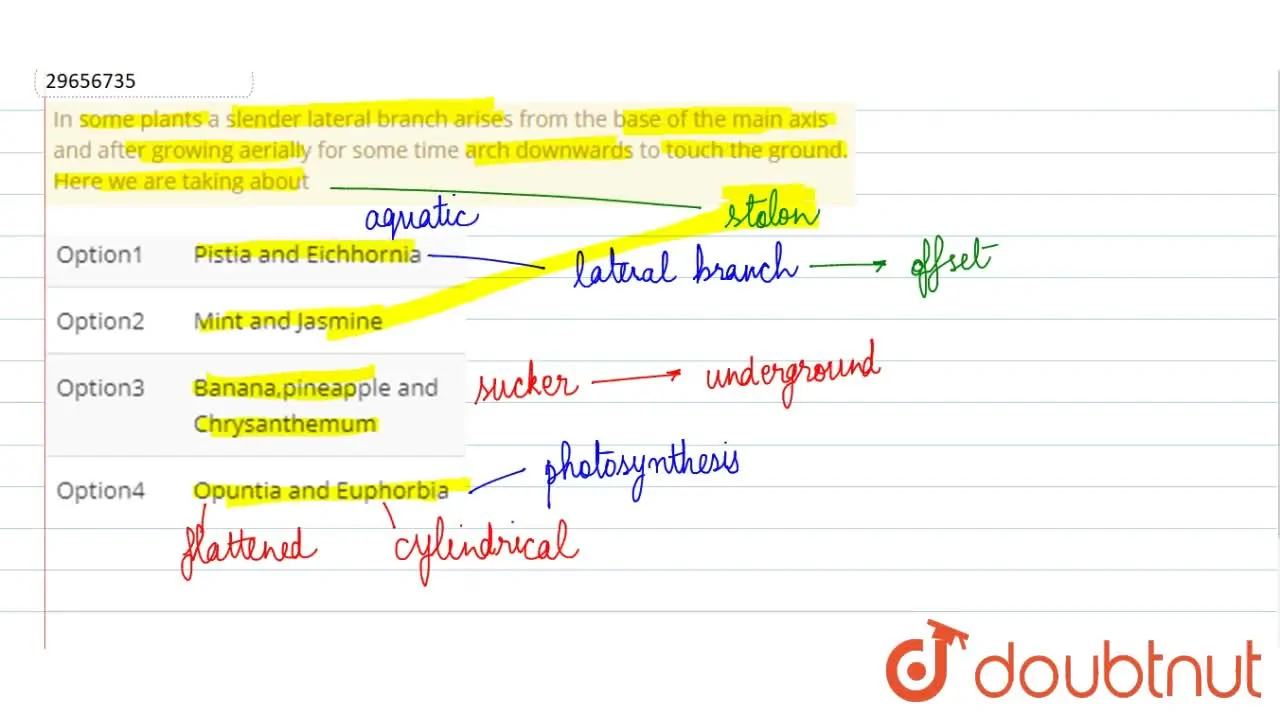 29656735
In some plants a slender lateral branch arises from the base of the main axis
and after growing aerially for some time arch downwards to touch the ground.
Here we are taking about
stolon
aquatic
Option1 Pistia and Eichhornia
lateral branch → offset
Option2 Mint and Jasmine
Option3 Banana,pineapple and
Chrysanthemum
sucker → underground
photosynthesis
Option4 Opuntia and Euphorbia
flattened cylindrical
doubtnut